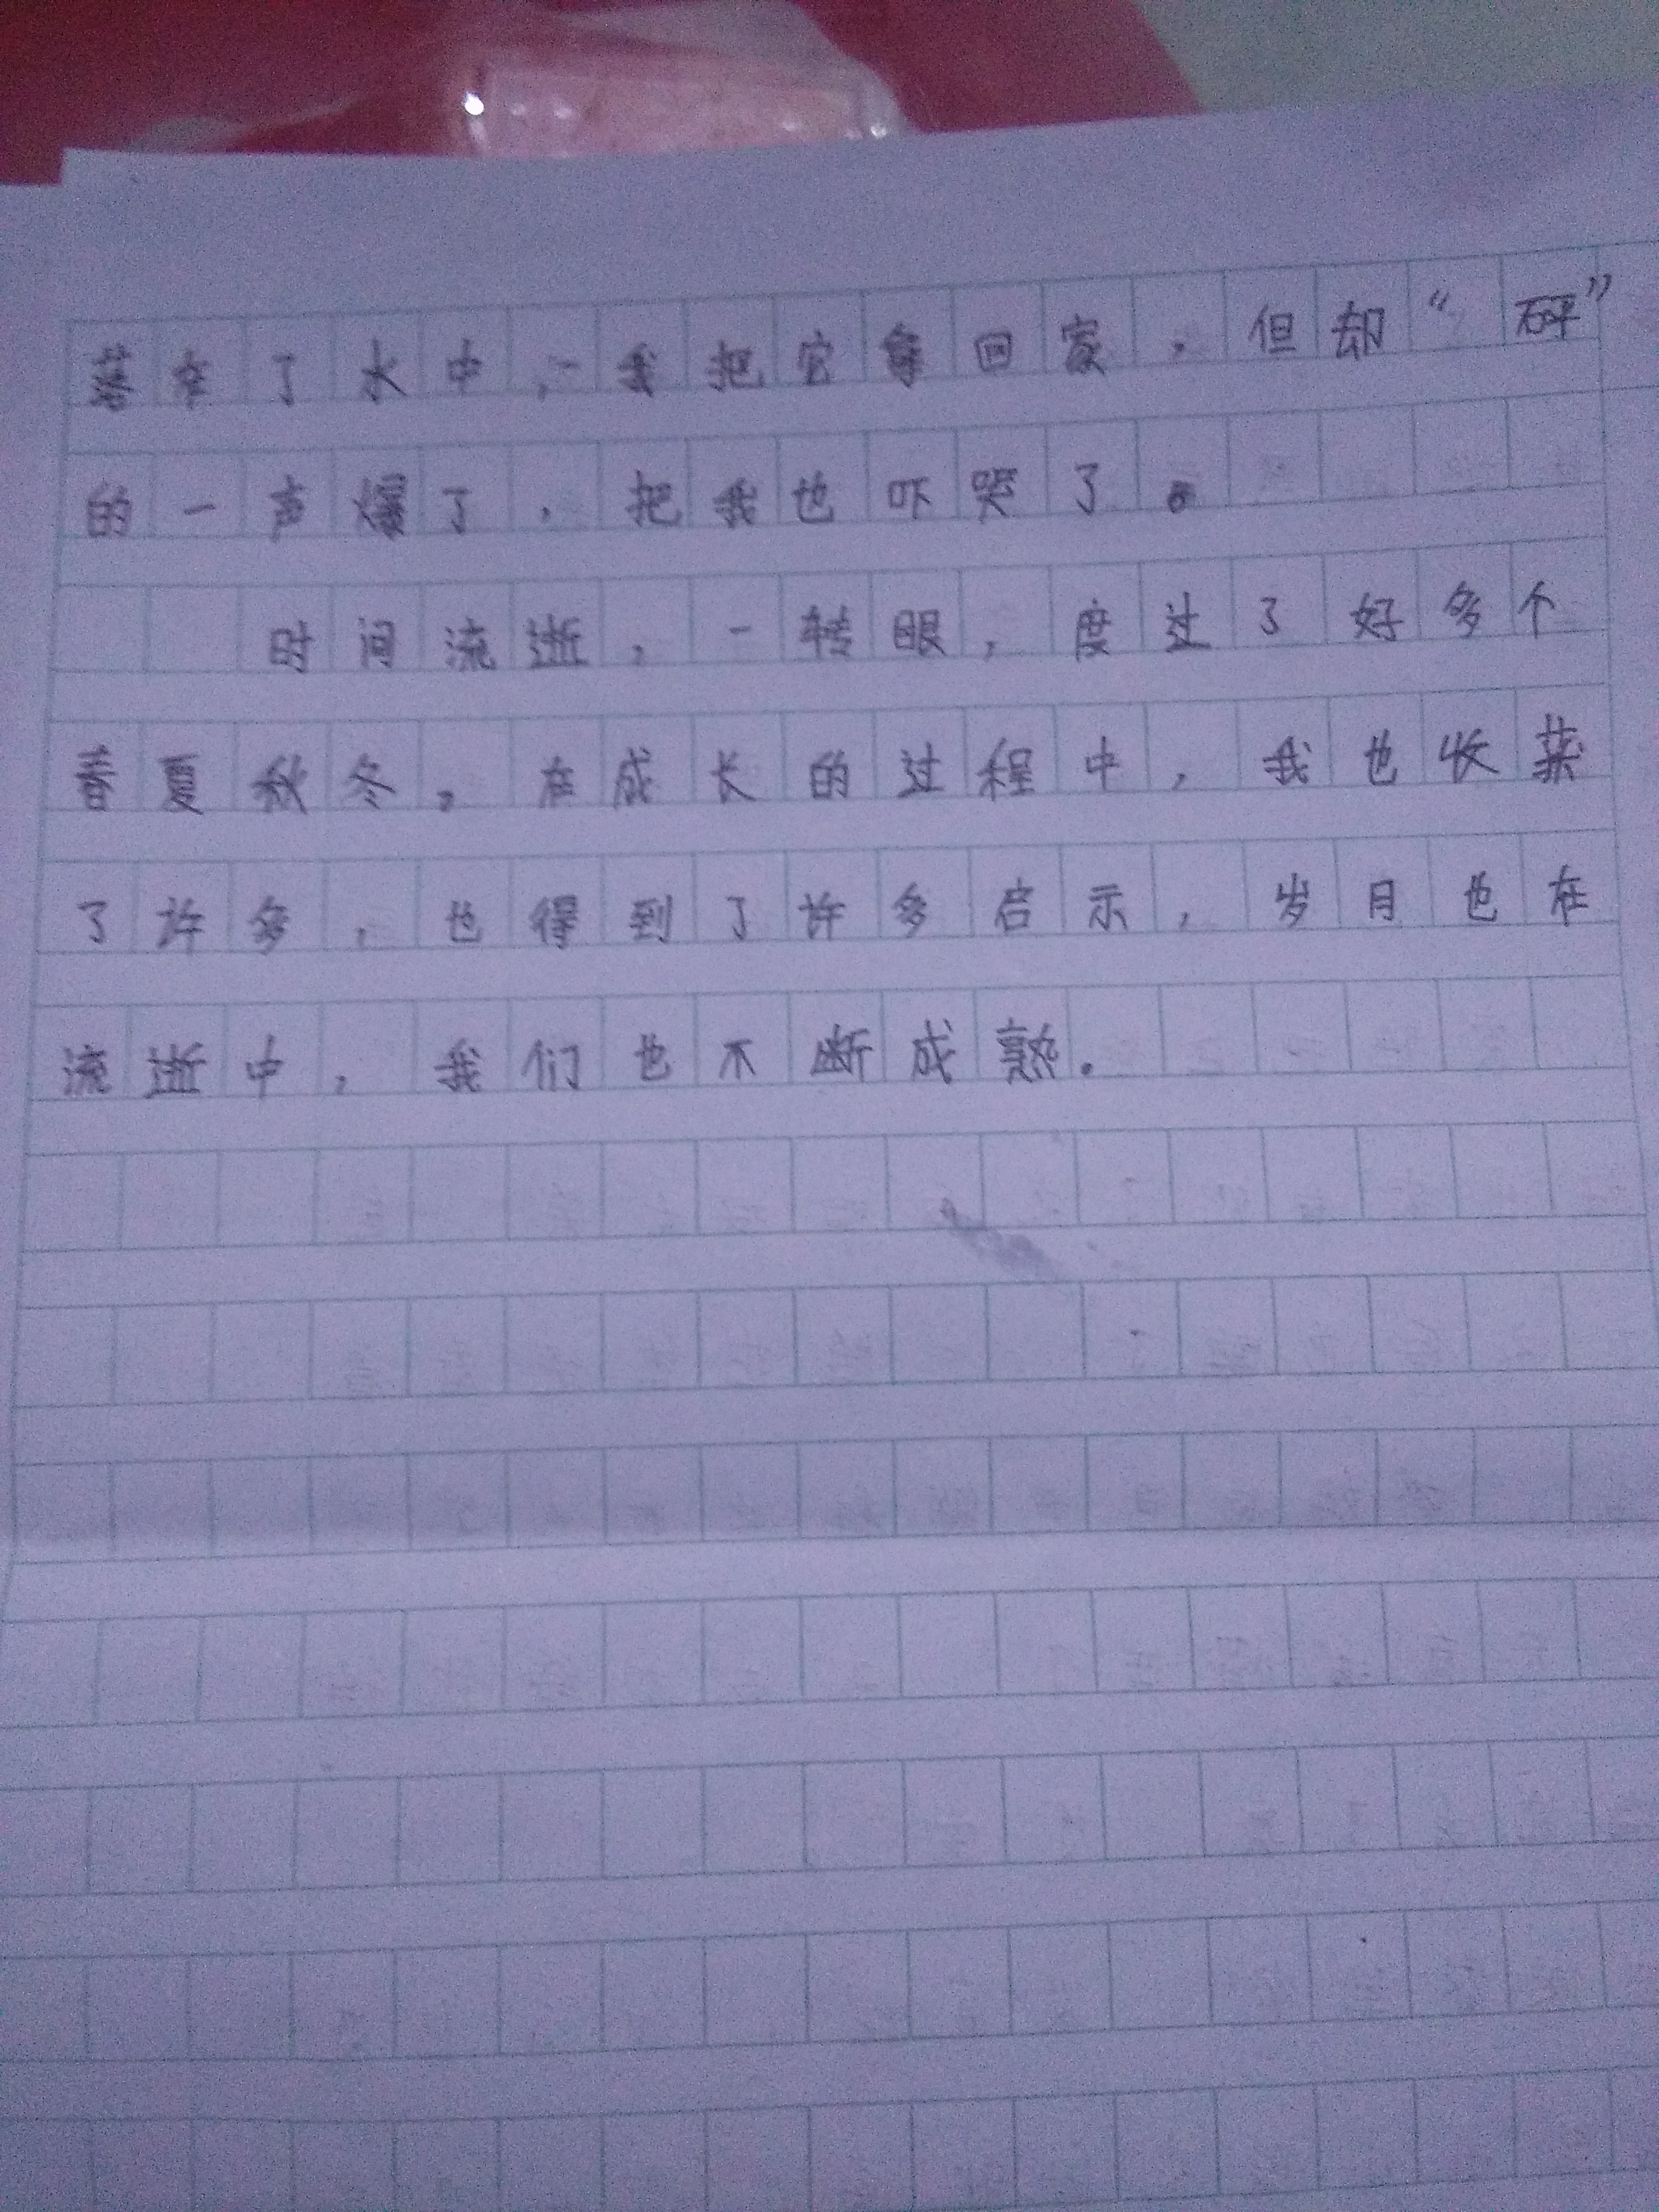 落在了水中，我把它拿回家，但却“砰”
的一声爆了，把我也吓哭了。
时间流逝，一转眼，度过了好多个
春夏秋冬。在成长的过程中，我也收获
了许多，也得到了许多启示，岁月也在
流逝中，我们也不断成熟。